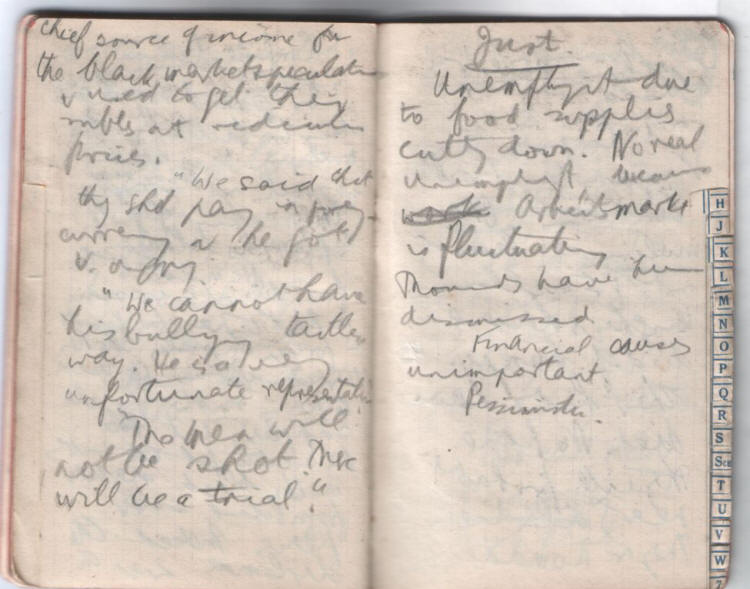 chief source of income for
the black market speculators
& used to get their
rubles at ridiculous
prices.
"We said that
they shd pay in foreign
currency & he got
v. angry.
"We cannot have
his bullying
way. He is a very
unfortunate representative
"The men will
not be shot. There
will be a trial."
Just.
Unemploymt due
to food supplies
cuttg down. No real
Unemploymt, because
Arbeitsmarkt
is fluctuating
Thousands have been
dismissed
Financial causes
unimportant
Pessimistic.
H
J
K
L
M
N
O
P
Q
R
S
Sch
T
U
V
W
Z